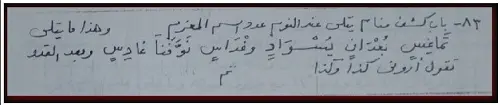 ٨٣- باب كشف منام يتلى عند النوم عدد اسم المعزوم وهذا ما يتلى
تَمَاغِيسٍ بُغْدَانٍ يَشْوَادٍ وَغْدَاسٍ نَوَّخْنَا غَادِيسٍ وبعد العدد
تقول أروني كذا وكذا تم